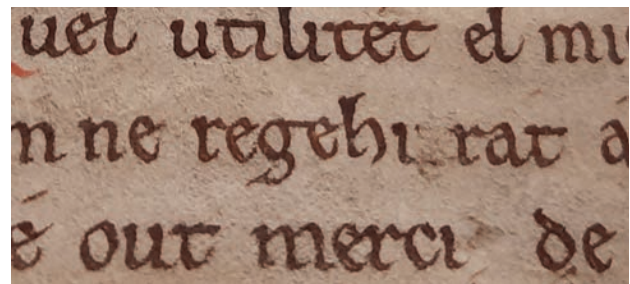 uel utilitet el mi
n ne regehi rat a
é out merci de